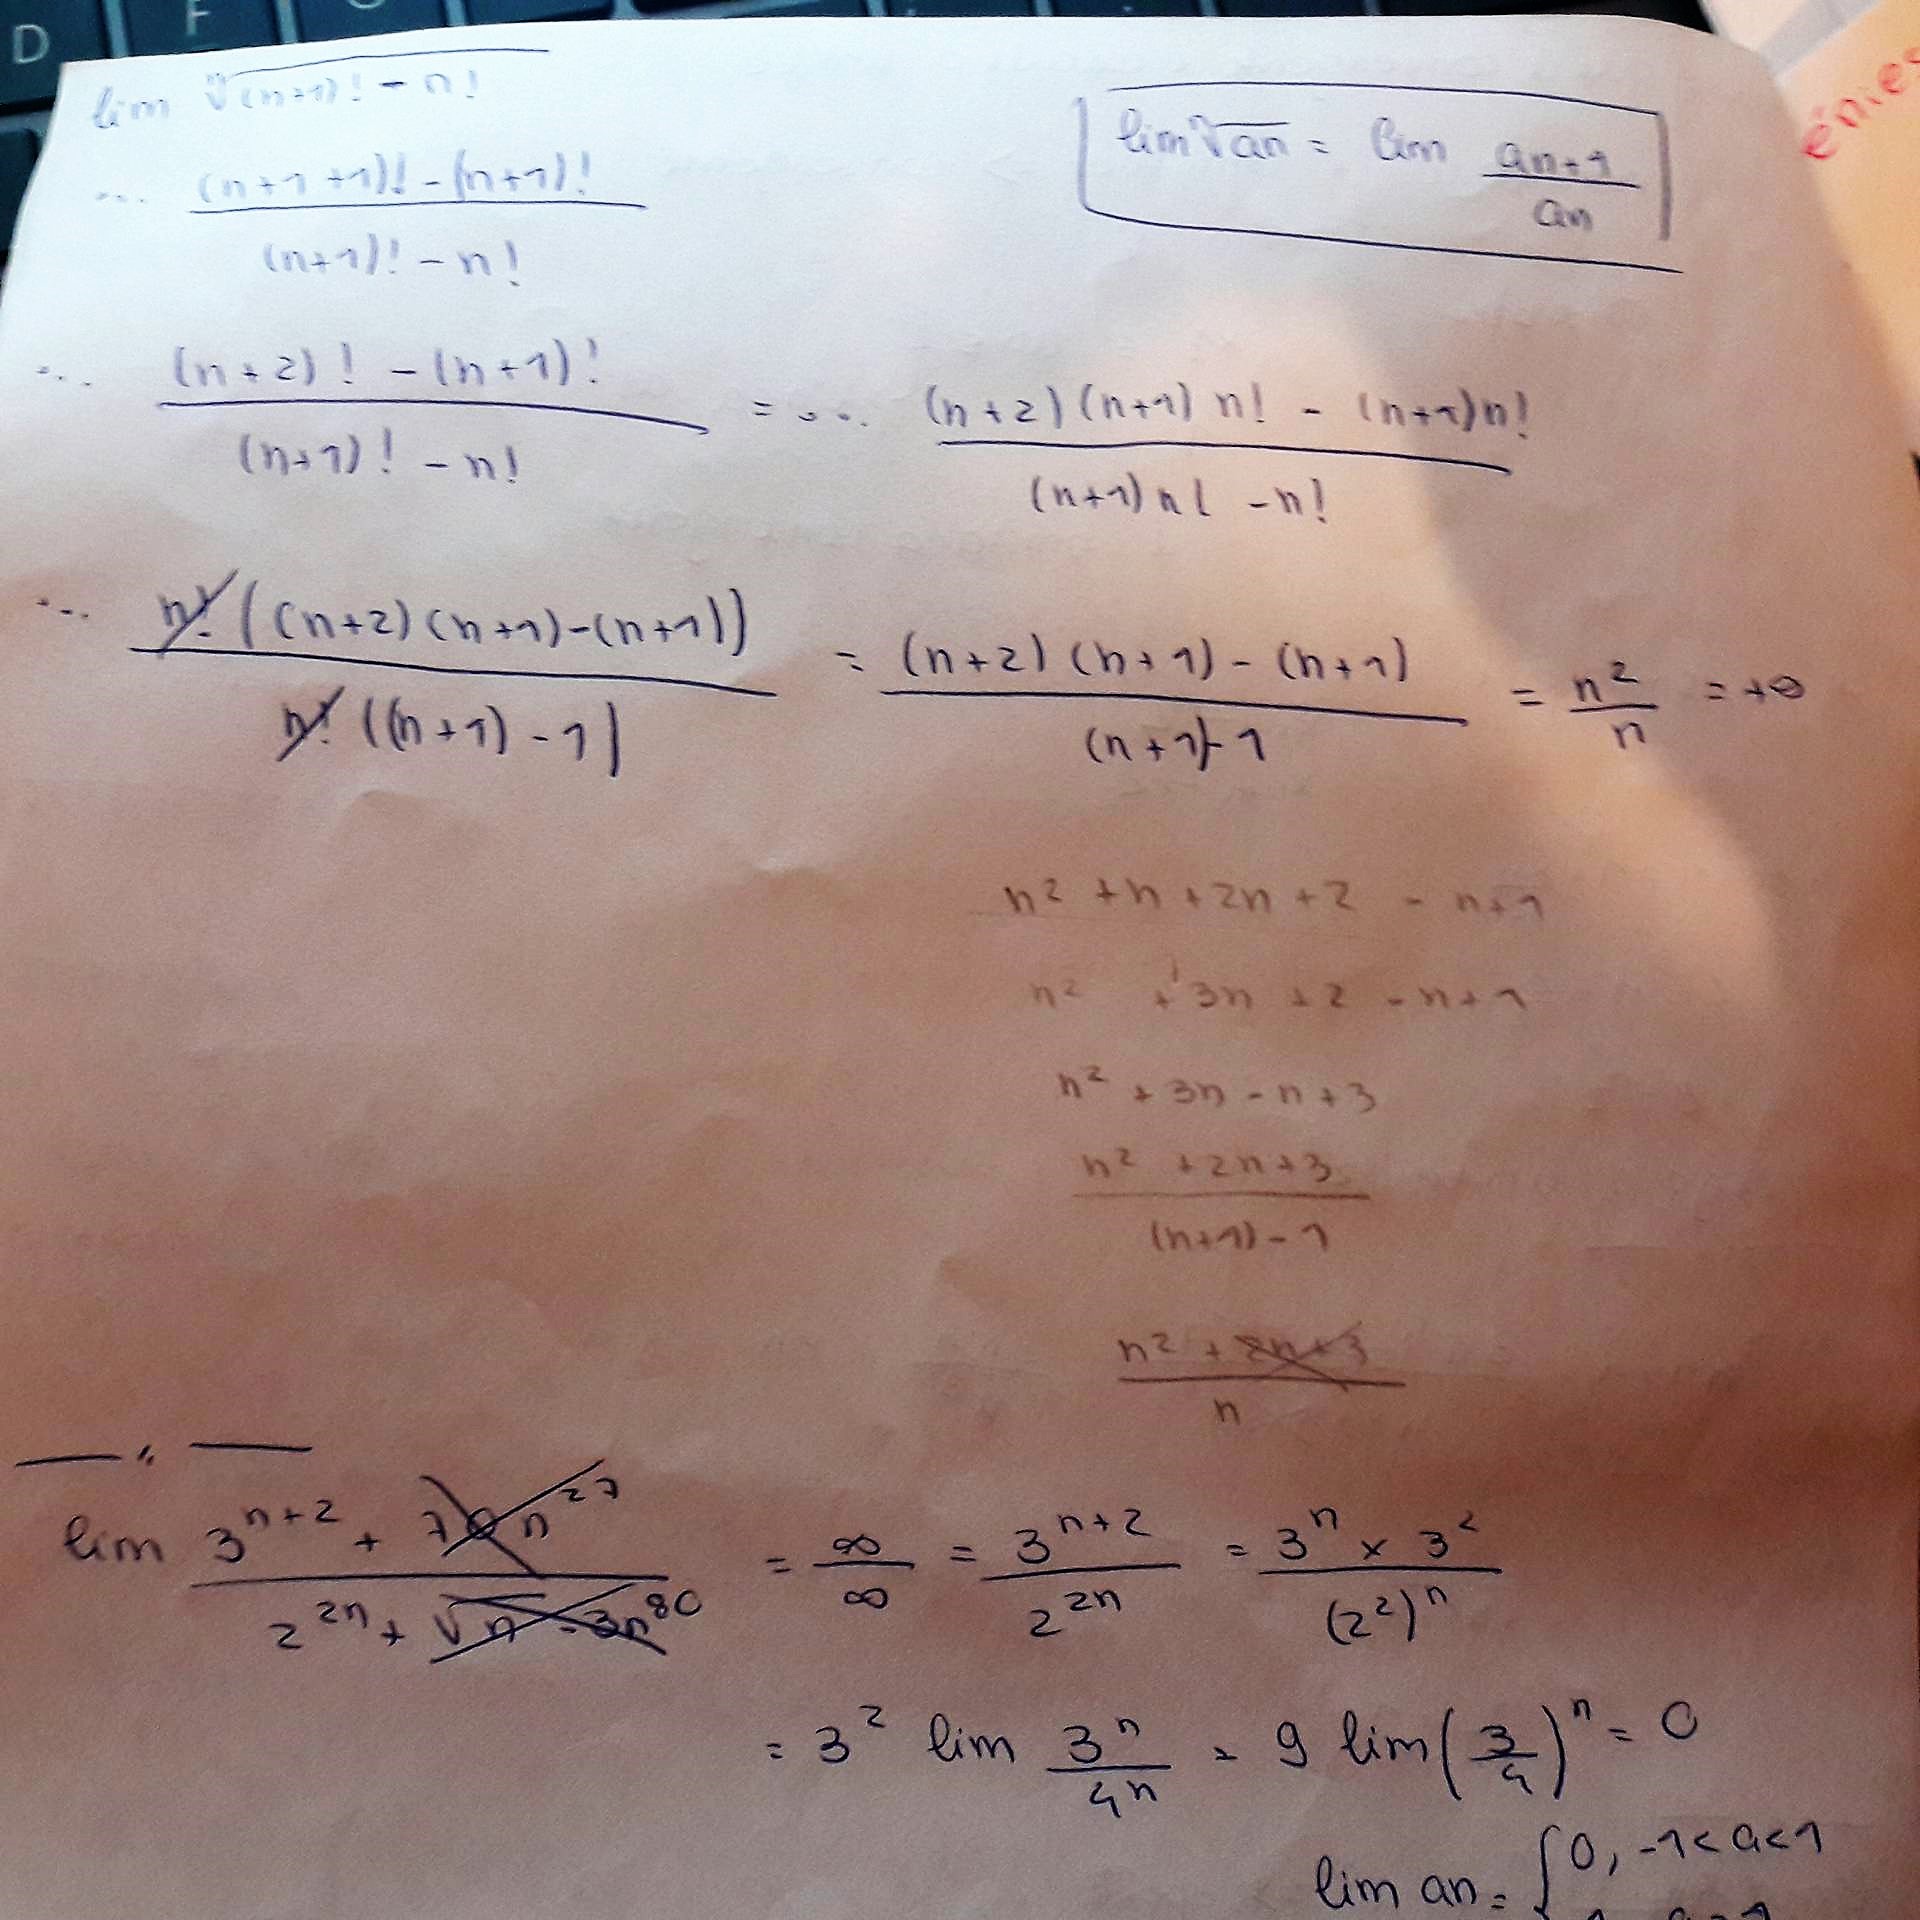 D F
énies
lim ⁿ√((n+1)! - n!)
lim ⁿ√an = lim (an+1)/(an)
... ((n+1+1)! - (n+1)!)/((n+1)! - n!)
... ((n+2)! - (n+1)!)/((n+1)! - n!) = ... ((n+2)(n+1)n! - (n+1)n!)/((n+1)n! - n!)
... (n!((n+2)(n+1)-(n+1)))/(n!((n+1)-1)) = ((n+2)(n+1)-(n+1))/((n+1)-1) = n²/n = +∞
n² + n + 2n + 2 - n+1
n² + 3n + 2 - n+1
n² + 3n - n + 3
(n² + 2n + 3)/((n+1)-1)
(n² + 2n+3)/n
lim (3ⁿ⁺² + 70n²⁷)/(2²ⁿ + √n - 3n⁸⁰) = ∞/∞ = 3ⁿ⁺²/2²ⁿ = (3ⁿ × 3²)/(2²)ⁿ
= 3² lim 3ⁿ/4ⁿ = 9 lim(3/4)ⁿ = 0
lim an = { 0, -1<a<1